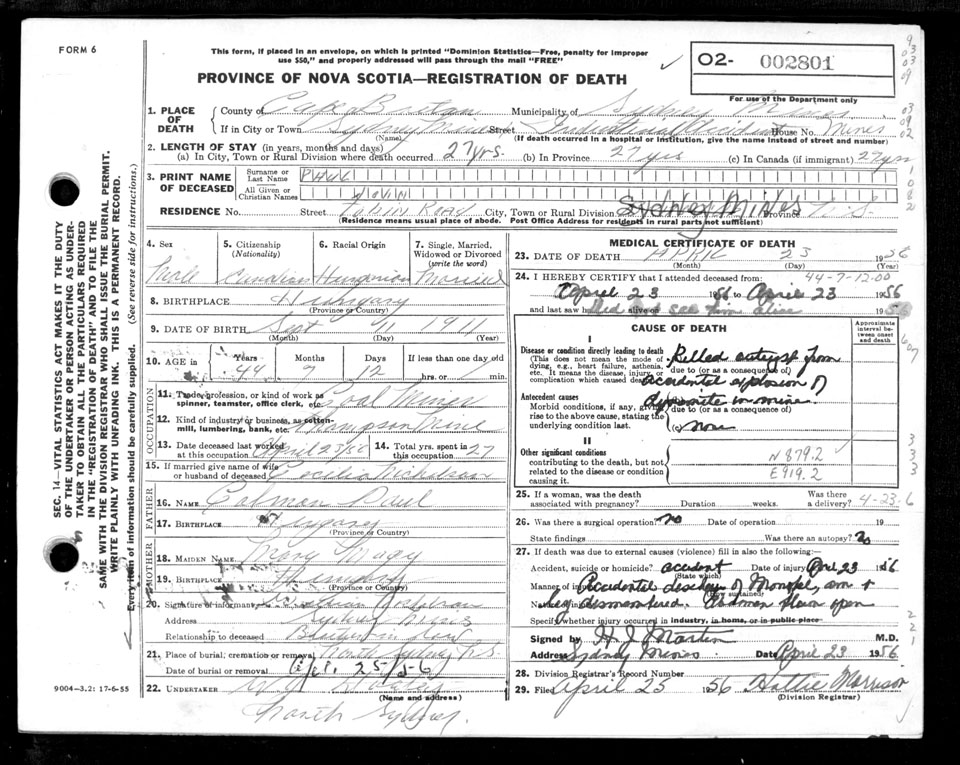 FORM 6
This form, if placed in an envelope, on which is printed "Dominion Statistics—Free, penalty for improper
use $50," and properly addressed will pass through the mail "FREE"
PROVINCE OF NOVA SCOTIA—REGISTRATION OF DEATH
O2- 002801
For use of the Department only
1. PLACE OF DEATH County of Cape Breton Municipality of Sydney Mines
If in City or Town Sydney Mines Street Industrial Accident House No. Mines
(Name) (If death occurred in a hospital or institution, give the name instead of street and number)
2. LENGTH OF STAY (in years, months and days)
(a) In City, Town or Rural Division where death occurred 27 yrs. (b) In Province 27 yrs (c) In Canada (if immigrant) 27 yrs
3. PRINT NAME OF DECEASED Surname or Last Name PAUL
All Given or Christian Names
RESIDENCE No. Street TOBIN ROAD City, Town or Rural Division SYDNEY MINES Province N.S.
(Residence means usual place of abode. Post Office Address for residents in rural parts not sufficient)
4. Sex Male
5. Citizenship (Nationality) Canadian
6. Racial Origin Hungarian
7. Single, Married, Widowed or Divorced (write the word) Married
8. BIRTHPLACE Hungary
(Province or Country)
9. DATE OF BIRTH Sept 11 1911
(Month) (Day) (Year)
10. AGE in Years 44 Months 7 Days 12 If less than one day old hrs. or min.
OCCUPATION
11. Trade, profession, or kind of work as spinner, teamster, office clerk, etc. Coal Miner
12. Kind of industry or business, as cotton mill, lumbering, bank, etc. Mine
13. Date deceased last worked at this occupation April 23/56 14. Total yrs. spent in this occupation 27
15. If married give name of wife or husband of deceased Cecilia
FATHER
16. NAME Colman Paul
17. BIRTHPLACE Hungary
(Province or Country)
MOTHER
18. MAIDEN NAME Mary
19. BIRTHPLACE
(Province or Country)
20. Signature of informant
Address Sydney Mines
Relationship to deceased Brother in law
21. Place of burial, cremation or removal North Sydney N.S.
Date of burial or removal Apl. 25/56
22. UNDERTAKER
(Name and Address)
North Sydney.
9004—3.2: 17-6-55
SEC. 14—VITAL STATISTICS ACT MAKES IT THE DUTY
OF THE UNDERTAKER OR PERSON ACTING AS UNDER-
TAKER TO OBTAIN ALL THE PARTICULARS REQUIRED
IN THE "REGISTRATION OF DEATH" AND TO FILE THE
SAME WITH THE DIVISION REGISTRAR WHO SHALL ISSUE THE BURIAL PERMIT.
WRITE PLAINLY WITH UNFADING INK. THIS IS A PERMANENT RECORD.
Every item of information should be carefully supplied. (See reverse side for instructions.)
MEDICAL CERTIFICATE OF DEATH
23. DATE OF DEATH APRIL 23 1956
(Month) (Day) (Year)
24. I HEREBY CERTIFY that I attended deceased from: 44-7-12.00
April 23 1956 to April 23 1956
and last saw h alive on Did not see him alive 1956
CAUSE OF DEATH
Approximate interval between onset and death
I
Disease or condition directly leading to death Killed outright from
(This does not mean the mode of dying, e.g., heart failure, asthenia, etc. It means the disease, injury, or complication which caused death)
due to (or as a consequence of) accidental explosion of
Antecedent causes
Morbid conditions, if any, giving rise to the above cause, stating the underlying condition last.
dynamite in mine.
due to (or as a consequence of)
(c) None
II
Other significant conditions
contributing to the death, but not related to the disease or condition causing it.
N 879.2
E 919.2
25. If a woman, was the death associated with pregnancy? Duration weeks. Was there a delivery? 4-23-6
26. Was there a surgical operation? no Date of operation 19
State findings Was there an autopsy? no
27. If death was due to external causes (violence) fill in also the following:—
Accident, suicide or homicide? accident Date of injury April 23 1956
(State which)
Manner of injury Accidental discharge of Monobel, arm &
(How sustained)
Nature of injury leg dismembered. Abdomen blown open
Specify whether injury occurred in industry, in home, or in public place
Signed by H J Martin M.D.
Address Sydney Mines Date April 23 1956
28. Division Registrar's Record Number
29. Filed April 25 1956 Hattie Morrison
(Division Registrar)